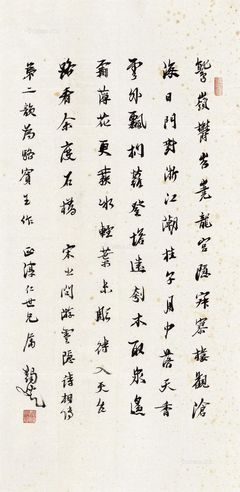 鷲嶺鬱岧嶤龍宮隱寂寥樓觀滄
海日門對浙江潮桂子月中落天香
雲外飄捫蘿登塔遠刳木取泉遙
霜薄花更發冰輕葉未彫待入天台
路看余度石橋 宋之問游靈隱詩相傳
第二韻為駱賓王作 正淳仁世兄屬